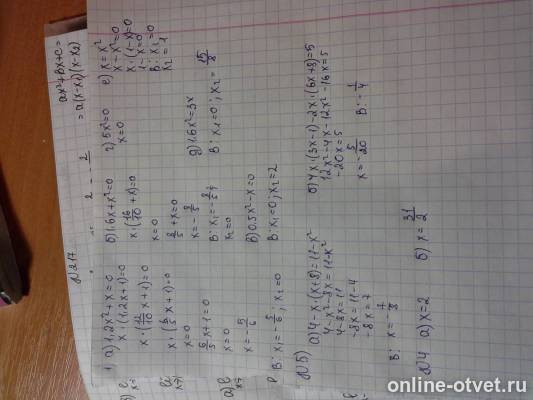 ax²+bx+c=
=a(x-x₁)(x-x₂)
№217
1. а) 1,2x²+x=0
x·(1,2x+1)=0
x·(12/10 x+1)=0
x·(6/5 x+1)=0
x=0
6/5 x+1=0
x=0
x=-5/6
В: x₁=-5/6; x₂=0
б) 1.6x+x²=0
x·(16/10+x)=0
x=0
8/5+x=0
x=-8/5
x₂=0
В) 0.5x²-x=0
В: x₁=0; x₂=2
г) 5x²=0
x=0
д) 1.6x²=3x
В: x₁=0; x₂=15/8
е) x=x²
x-x²=0
x·(1-x)=0
1-x=0
В: x₁=0
x₂=1
№5) а) 4-x·(x+8)=11-x²
4-x²-8x=11-x²
4-8x=11
-8x=11-4
-8x=7
В: x=-7/8
б) 4x·(3x-1)-2x·(6x+8)=5
12x²-4x-12x²-16x=5
-20x=5
x=-5/20
В: -1/4
№4 а) x=2
б) x=31/2
online-otvet.ru